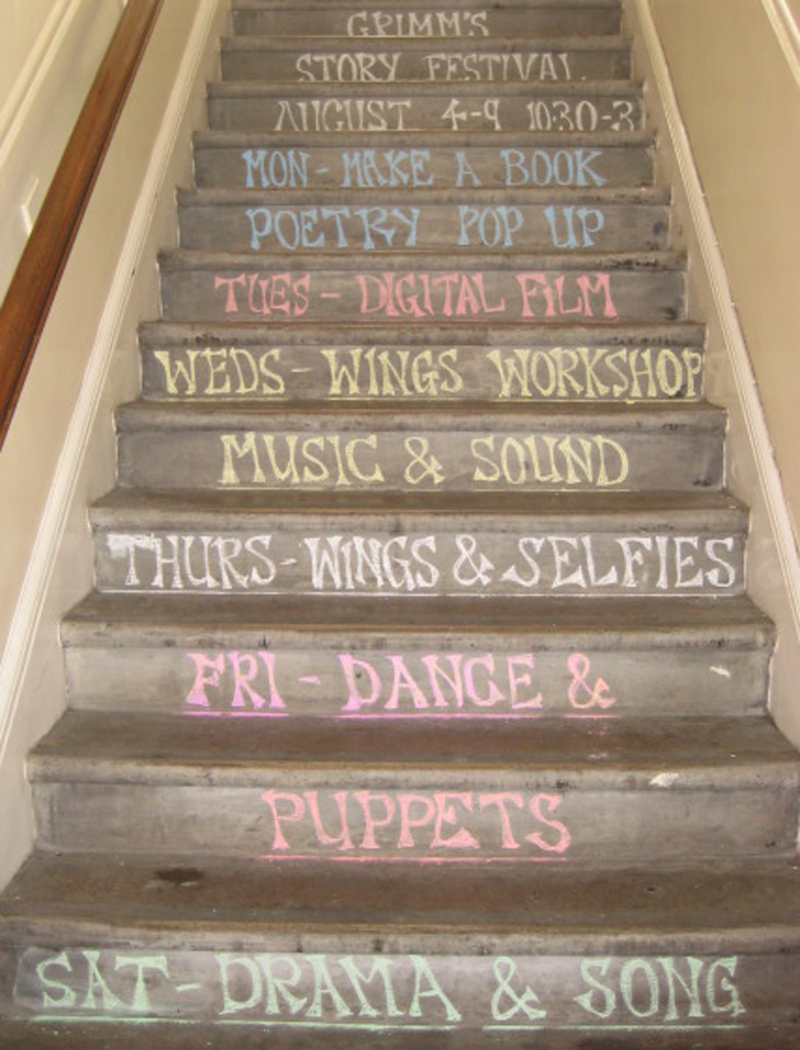 GRIMM'S
STORY FESTIVAL
AUGUST 4-9 10:30-3
MON - MAKE A BOOK
POETRY POP UP
TUES - DIGITAL FILM
WEDS - WINGS WORKSHOP
MUSIC & SOUND
THURS - WINGS & SELFIES
FRI - DANCE &
PUPPETS
SAT - DRAMA & SONG